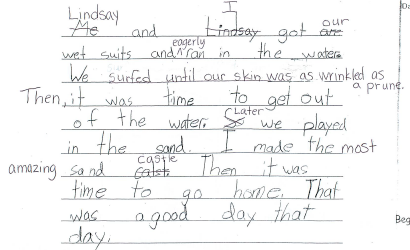 Lindsay I our
Me and Lindsay got are
eagerly
wet suits and ran in the water.
We surfed until our skin was as wrinkled as
a prune.
Then, it was time to get out
of the water. Later we played
in the sand. I made the most
castle
amazing sand Then it was
time to go home. That
was a good day that
day.
Beg